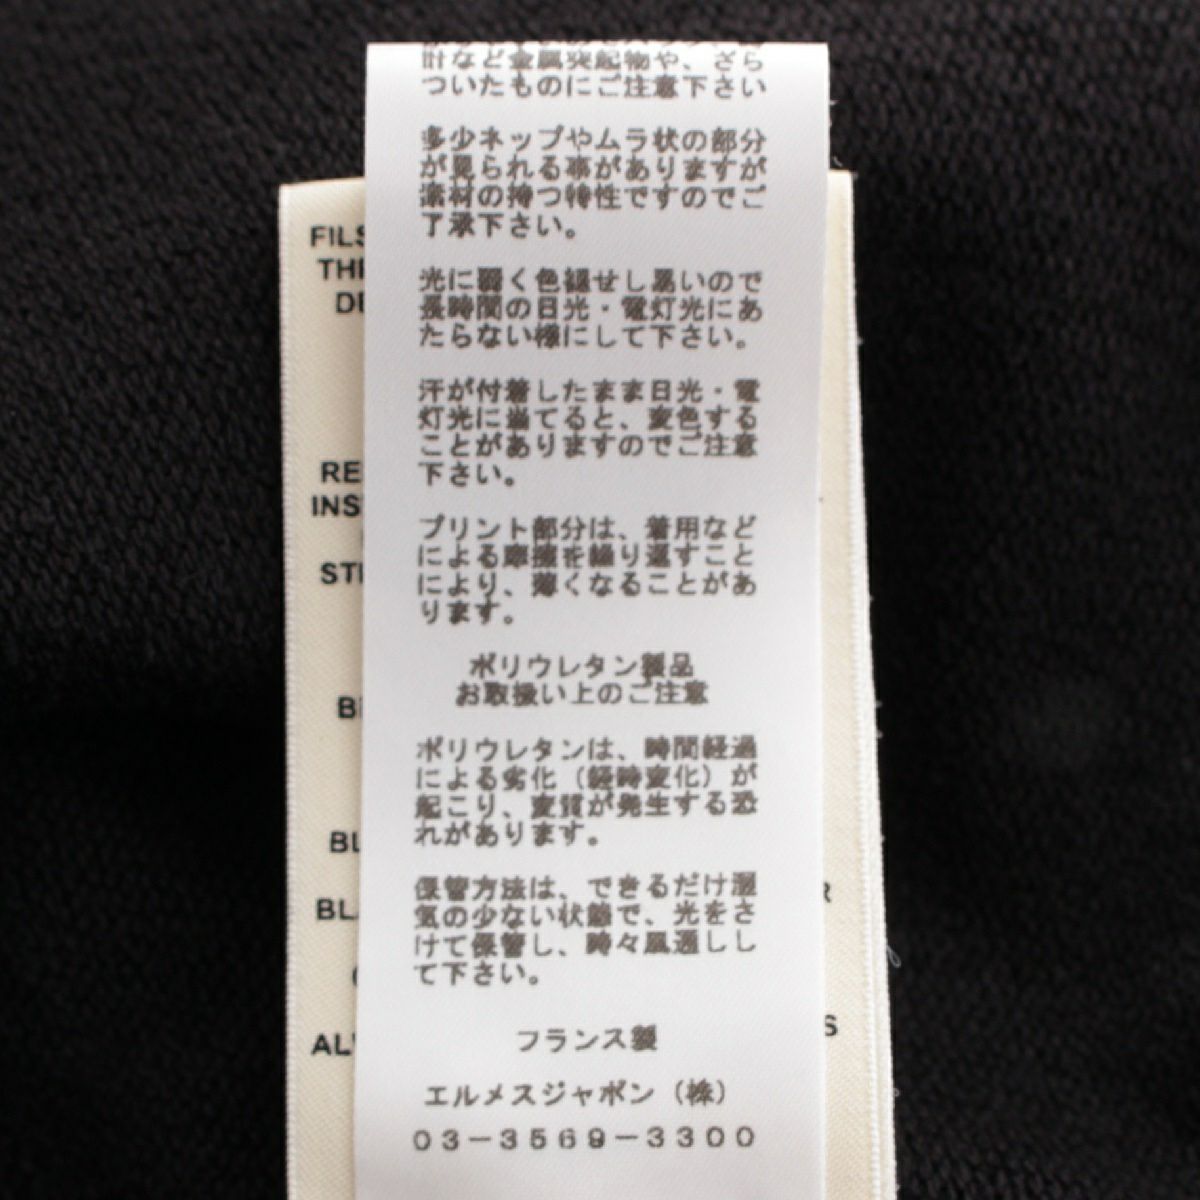 計など金属突起物や、ざら
ついたものにご注意下さい
多少ネップやムラ状の部分
が見られる事がありますが
素材の持つ特性ですのでご
了承下さい。
光に弱く色褪せし易いので
長時間の日光・電灯光にあ
たらない様にして下さい。
汗が付着したまま日光・電
灯光に当てると、変色する
ことがありますのでご注意
下さい。
プリント部分は、着用など
による摩擦を繰り返すこと
により、薄くなることがあ
ります。
ポリウレタン製品
お取扱い上のご注意
ポリウレタンは、時間経過
による劣化（経時変化）が
起こり、変質が発生する恐
れがあります。
保管方法は、できるだけ湿
気の少ない状態で、光をさ
けて保管し、時々風通しし
て下さい。
フランス製
エルメスジャポン（株）
03-3569-3300
FILS
THI
DE
RE
INS
STE
BL
BLA
AL
R
S